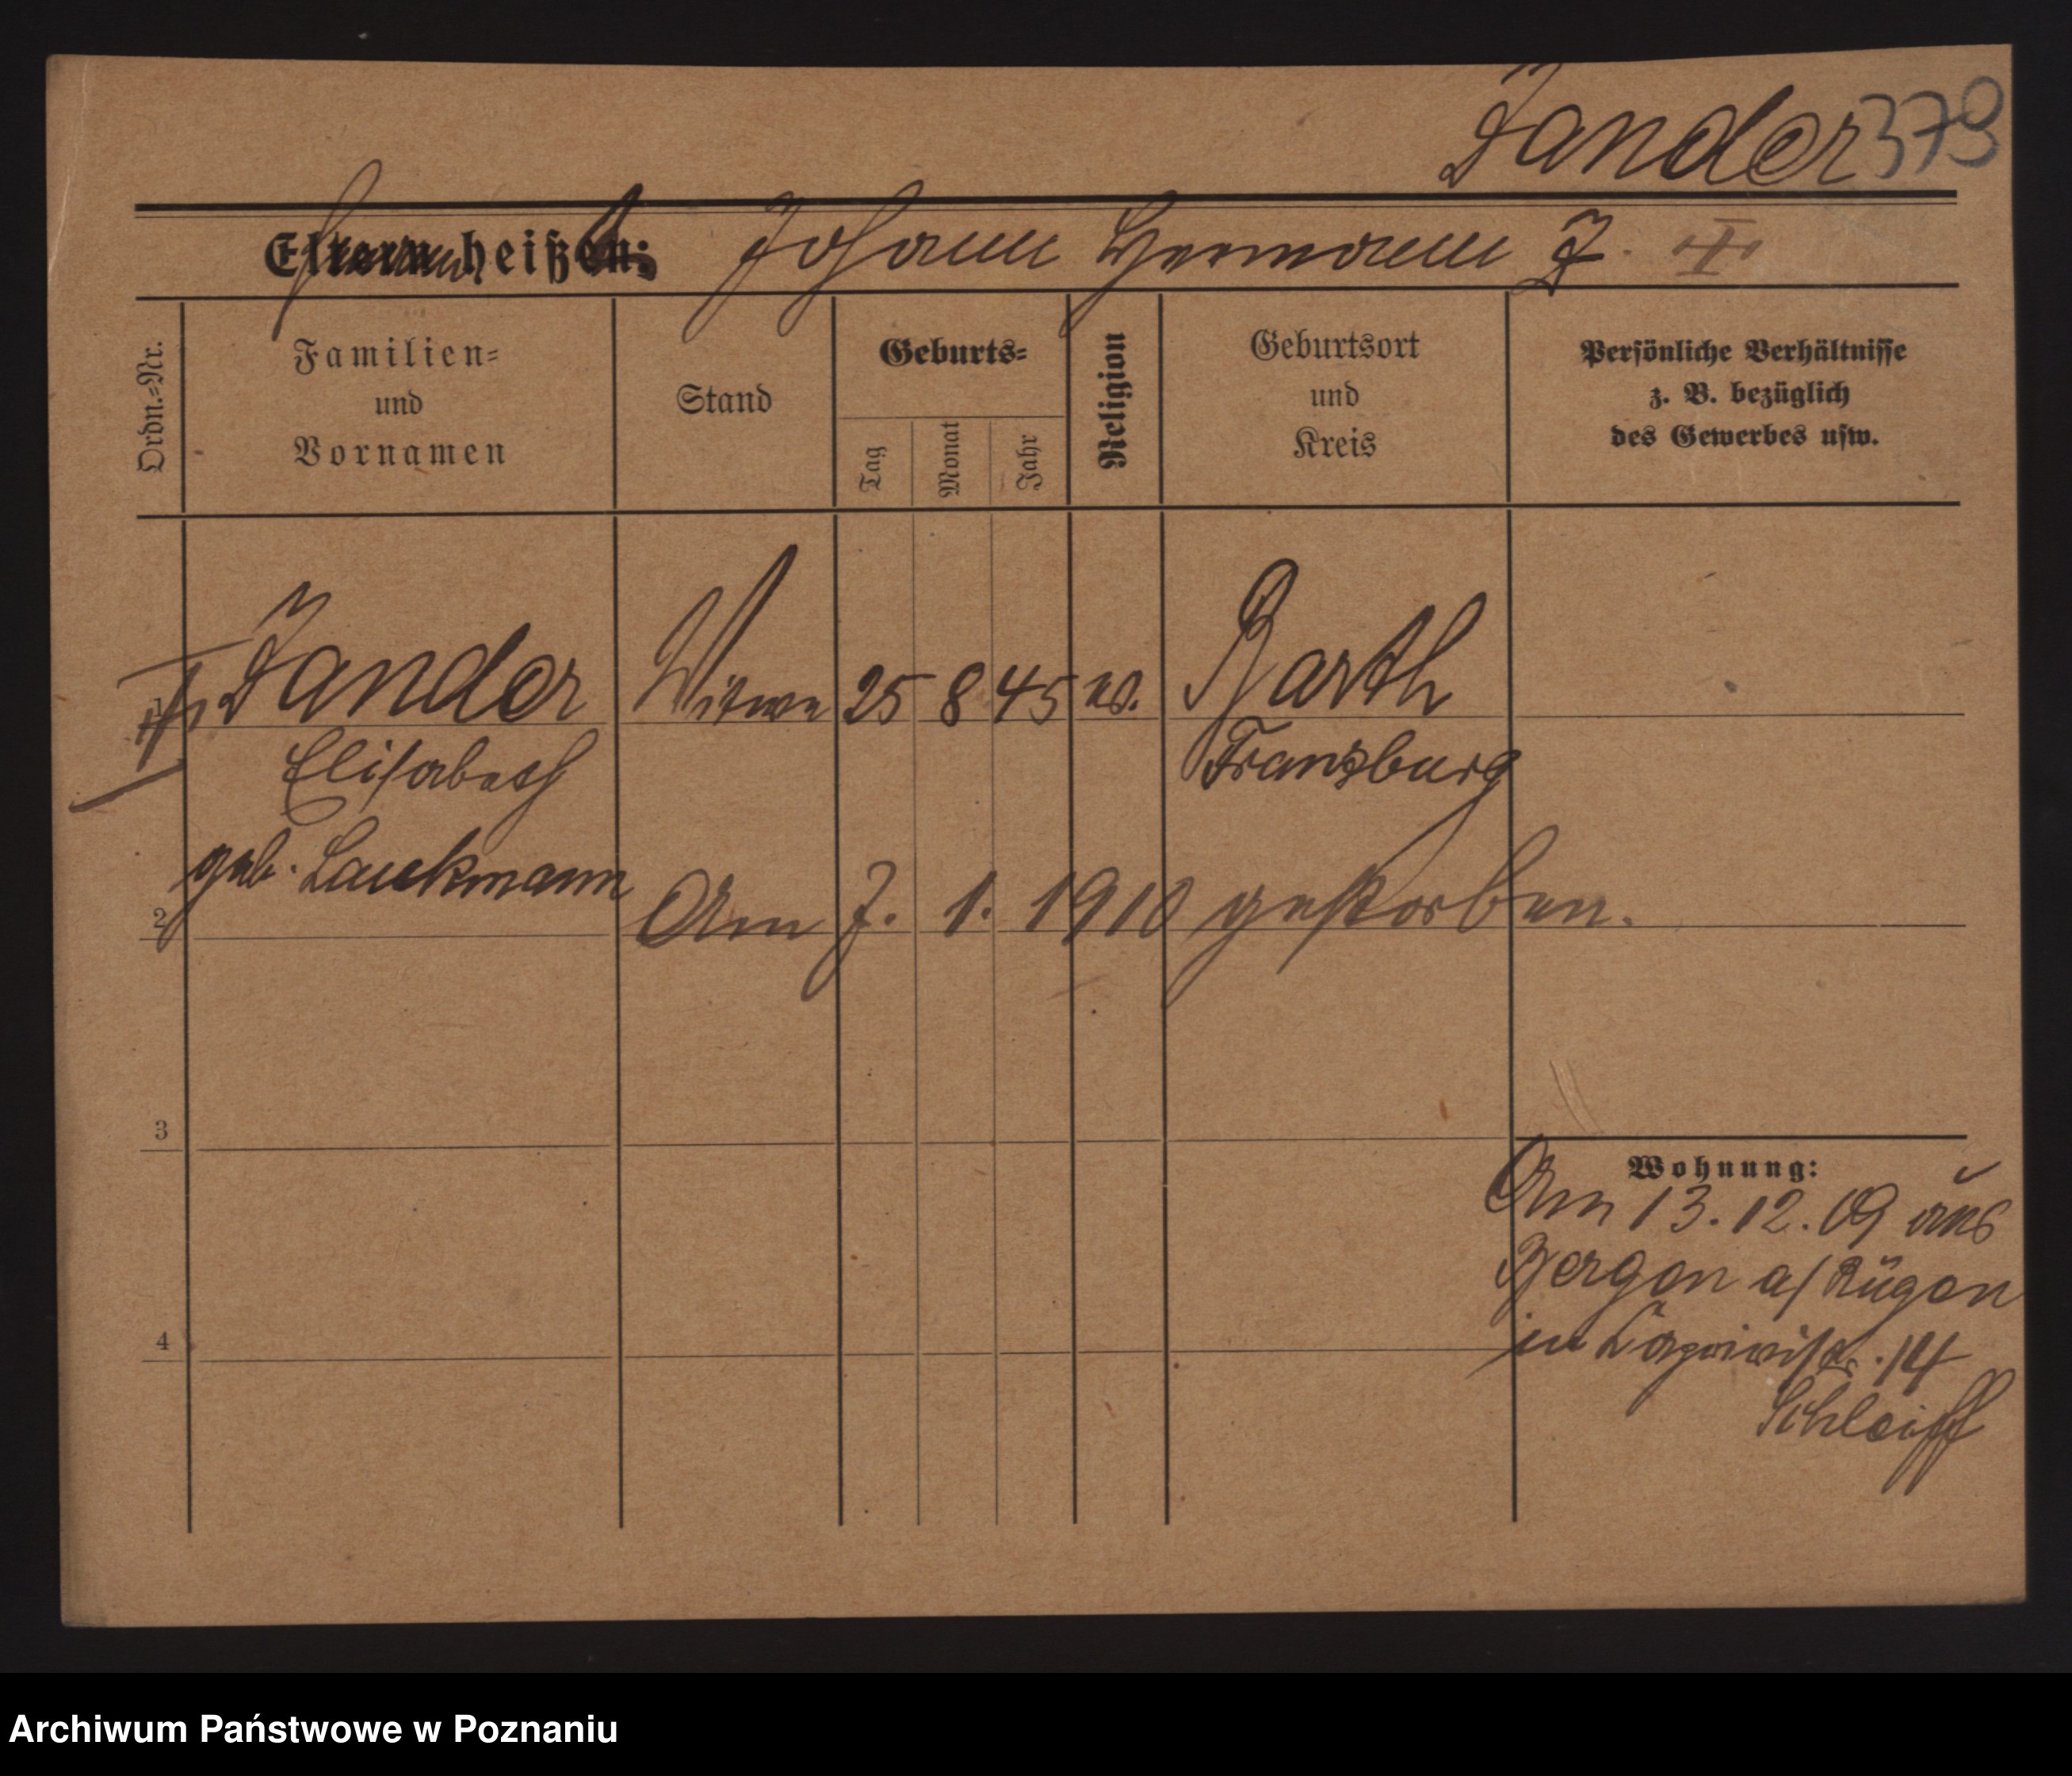 Zander 379
Eltern heißen: Johann Hermann Z.
Ordn.=Nr.
Familien=
und
Vornamen
Stand
Geburts=
Tag
Monat
Jahr
Religion
Geburtsort
und
Kreis
Persönliche Verhältnisse
z. B. bezüglich
des Gewerbes usw.
1 Zander Witwe 25 8 45 ev. Barth
Elisabeth Franzburg
geb. Lauckmann
2 Am 7. 1. 1910 gestorben.
3
Wohnung:
Am 13.12.09 aus
Bergen a/Rügen
4 in 14
Schleiff
Archiwum Państwowe w Poznaniu